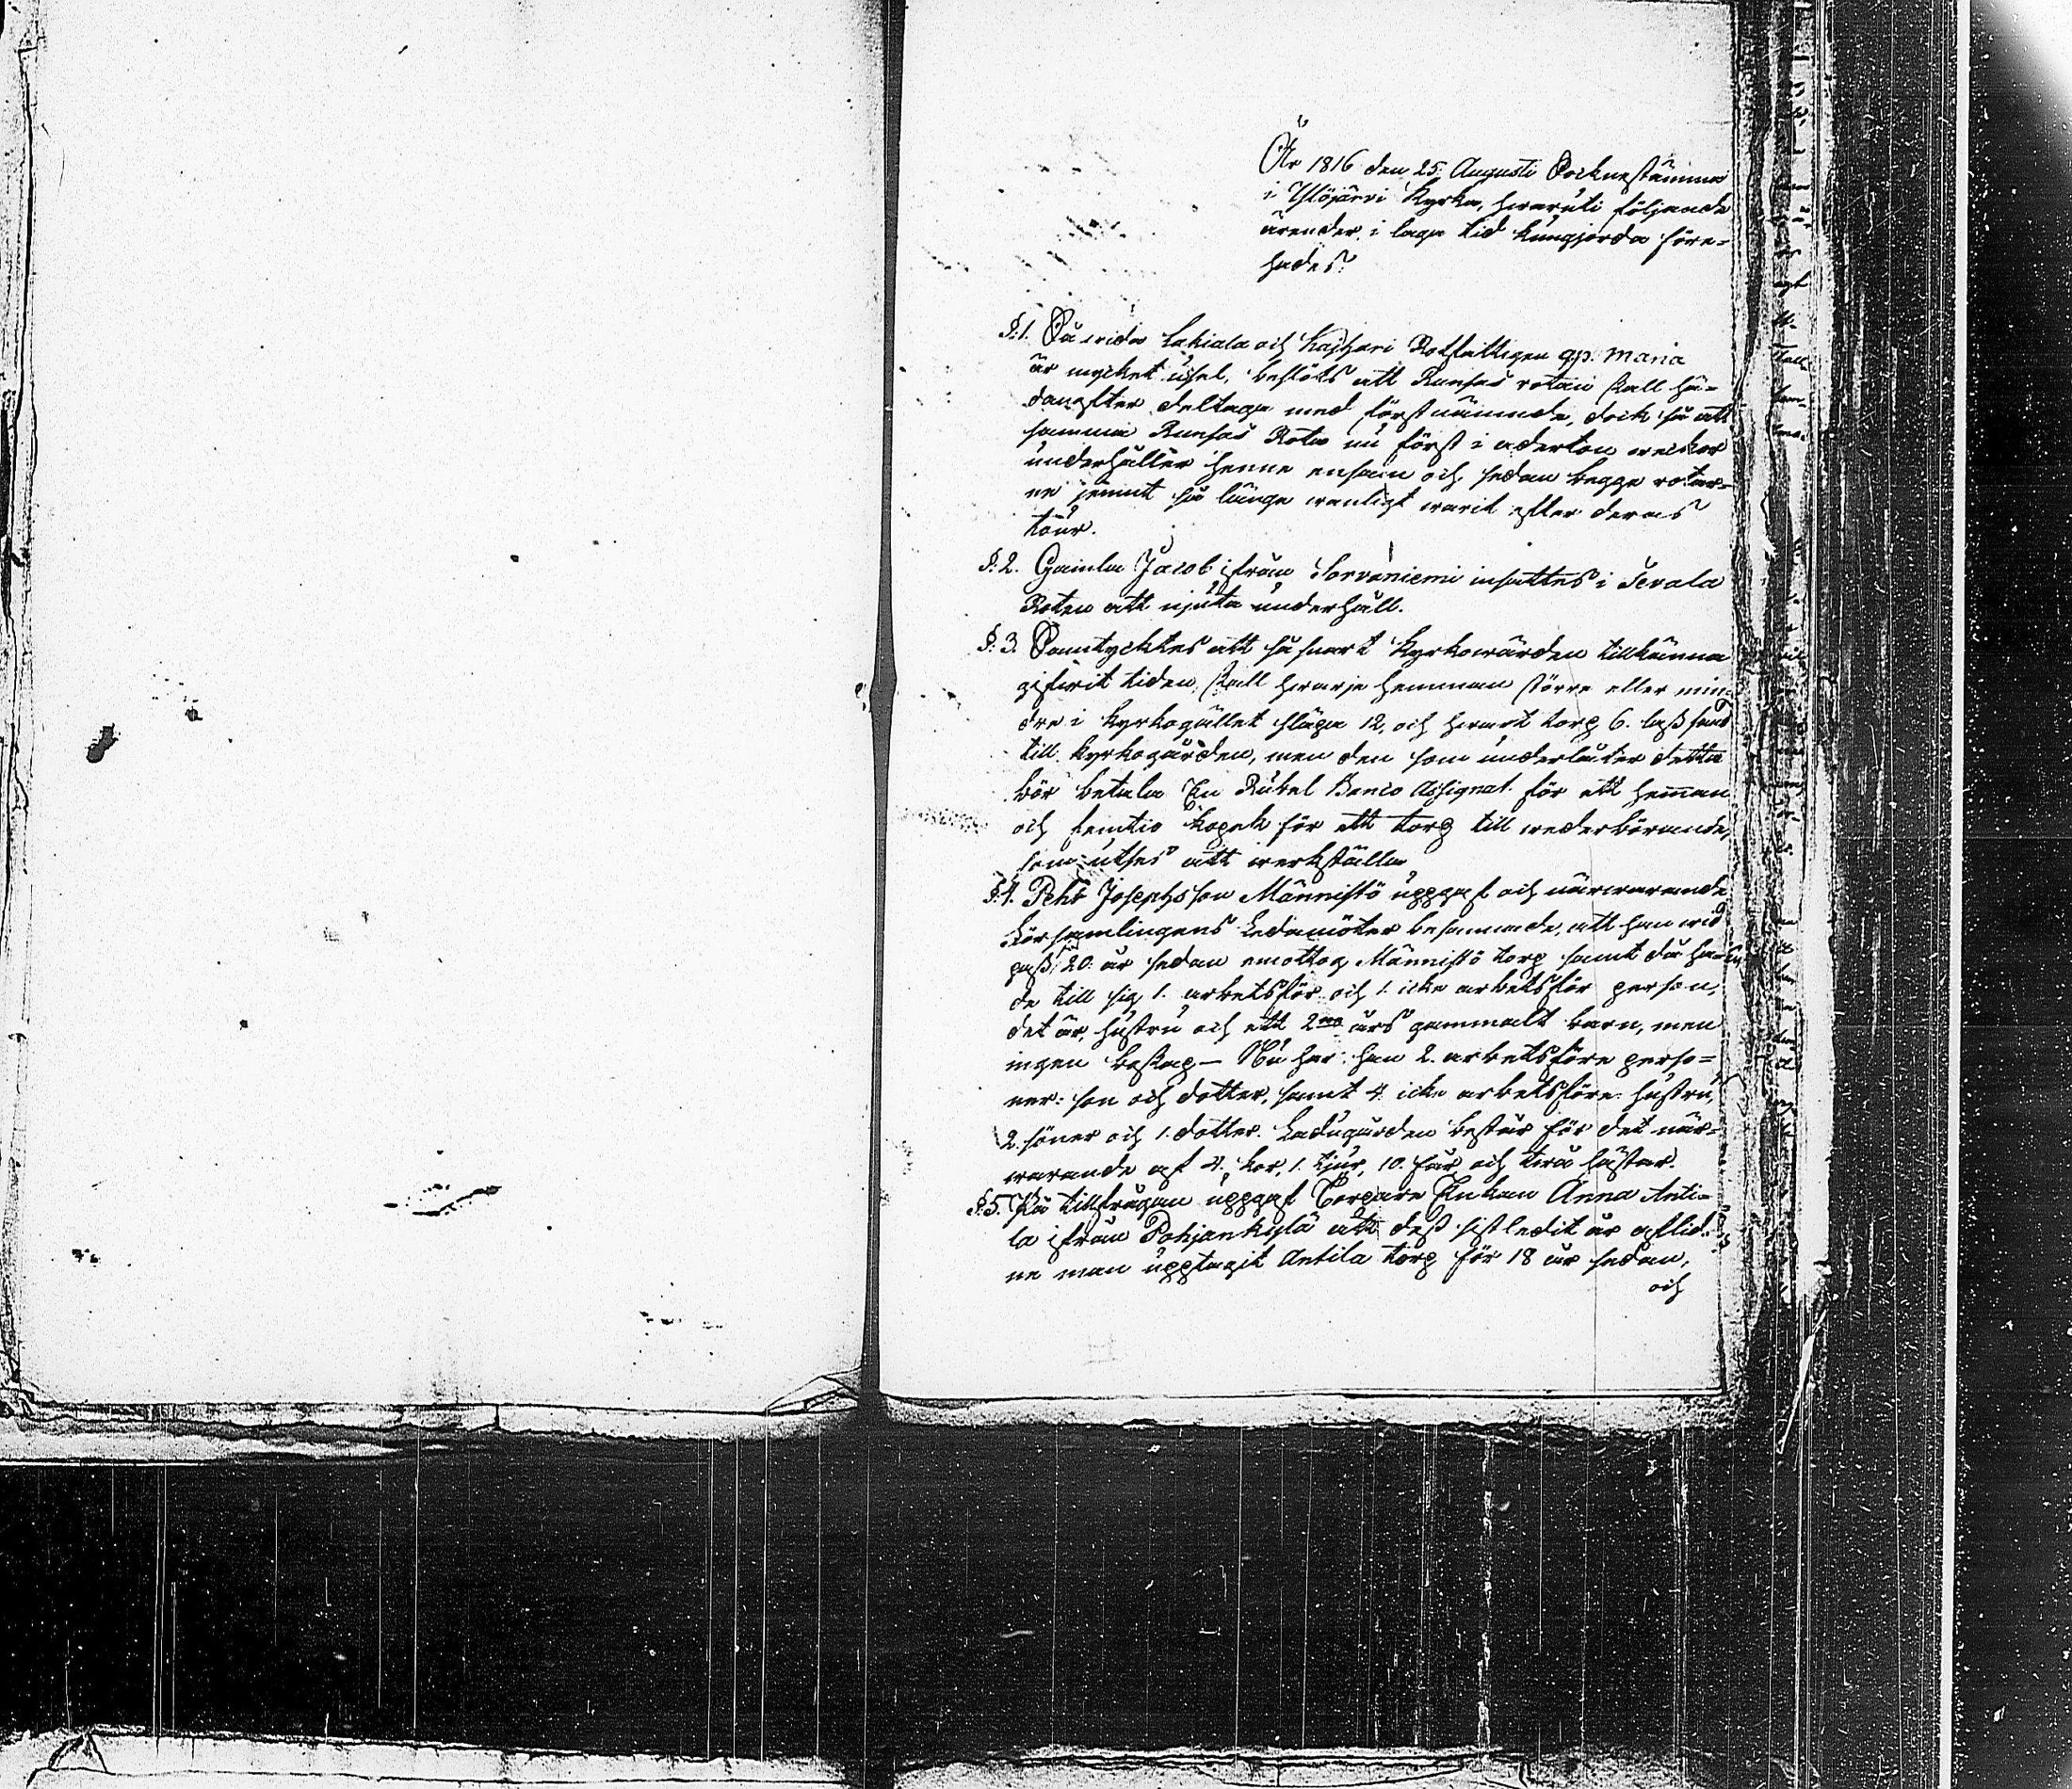 År 1816 den 25. Augusti Sockenstämma
i Ylöjärvi Kyrka, hwaruti följande
ärender i laga tid kungjorda före-
hades:
§.1. Så wida Lakiala och Kajhari Rotfattigen gp. Maria
är mycket usel, beslöts att Runsas rotan skall hä-
danefter deltaga med förstnämnde, dock så att
samma Runsas Rota nu först i aderton weckor
underhåller henne ensam och sedan begge rotar-
ne jemnt så länge wanligt warit efter deras
tour.
§.2. Gamla Jacob ifrån Sorvaniemi insattes i Tevala
Roten att njuta underhåll.
§.3. Samtycktes att så snart Kyrkowärden tillkänna
gifwit tiden, skall hwarje hemman större eller min-
dre i Kyrkogället släpa 12, och hwart torp 6. lass sand
till Kyrkogården, men den som underlåter detta
bör betala En Rubel Banco Assignat. för ett heman
och femtio kopek för ett torp till wederbörande,
som utses att werkställa
§.4. Pehr Josephsson Männistö uppgaf och närwarande
Församlingens Ledamöter besannade, att han wid
pass 20. år sedan emottog Männistö torp samt då ha-
de till sig 1. arbetsför och 1. icke arbetsför person,
det är, hustru och ett 2ne års gammalt barn, men
ingen boskap – Nu har han 2. arbetsföre perso-
ner: son och dotter, samt 4. icke arbetsföre: hustru,
2. söner och 1. dotter. Ladugården består för det när-
warande af 4. kor, 1. tjur, 10. får och twå hästar.
§.5. På tillfrågan uppgaf Torpare Enkan Anna Anti-
la ifrån Pohjankylä att dess sistledit år aflid-
ne man upptagit Antila torp för 18 år sedan,
och